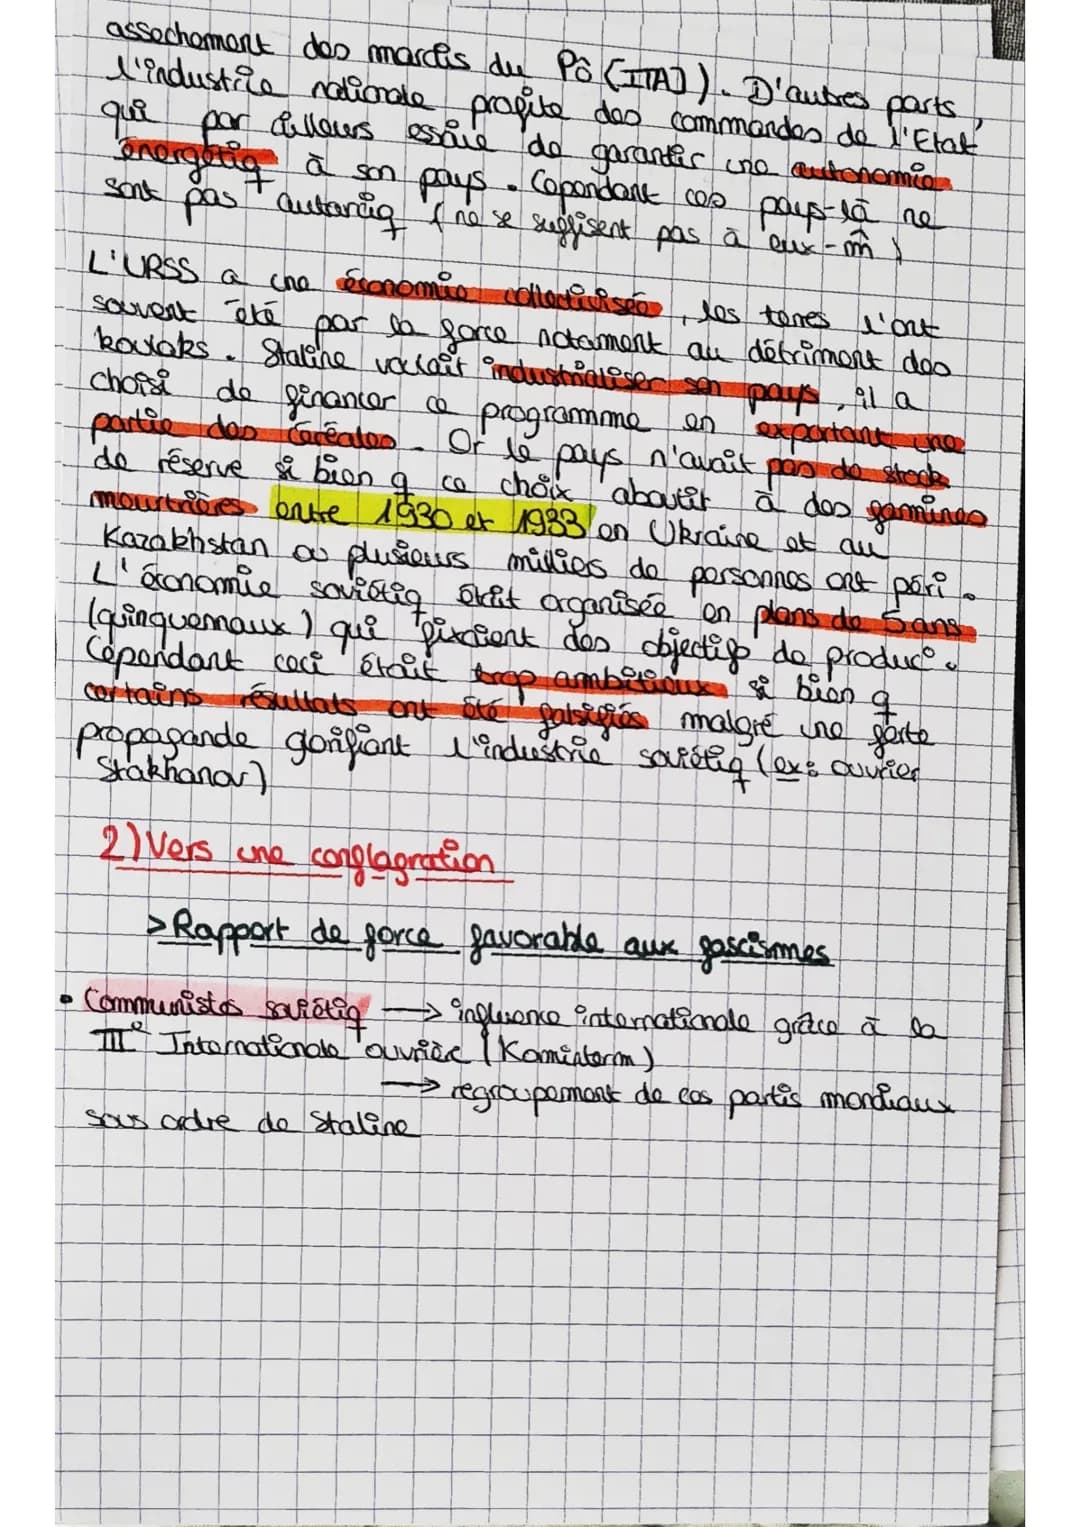 assechement des marais du Pô (ITA)). D'autres parts,
l'industrie nationale profite des commandes de l'Etat
qui par ailleurs essaie de garantir une autonomie
énergétiq à son pays. Cependant ces pays-là ne
sont pas autarciq (ne se suffisent pas à eux-m̂)
L'URSS a une économie collectivisée, les terres l'ont
souvent été par la force notament au détriment des
koulaks. Staline voulait industrialiser son pays, il a
choisi de financer ce programme en exportant une
partie des céréales. Or le pays n'avait pas de stock
de réserve si bien q ce choix aboutit à des famines
meurtrières entre 1930 et 1933 en Ukraine et au
Kazakhstan où plusieurs milliers de personnes ont péri.
L'économie soviétiq était organisée en plans de 5 ans
(quinquennaux) qui fixaient des objectifs de produc°.
Cependant ceci était trop ambitieux si bien q
certains résultats ont été falsifiés malgré une forte
propagande glorifiant l'industrie soviétiq (ex: ouvrier
Stakhanov)
2) Vers une conflagration
> Rapport de force favorable aux fascismes
• Communistes soviétiq → influence internationale grâce à la
IIIe Internationale ouvrière (Kominterm)
→ regroupement de ces partis mondiaux
sous ordre de Staline